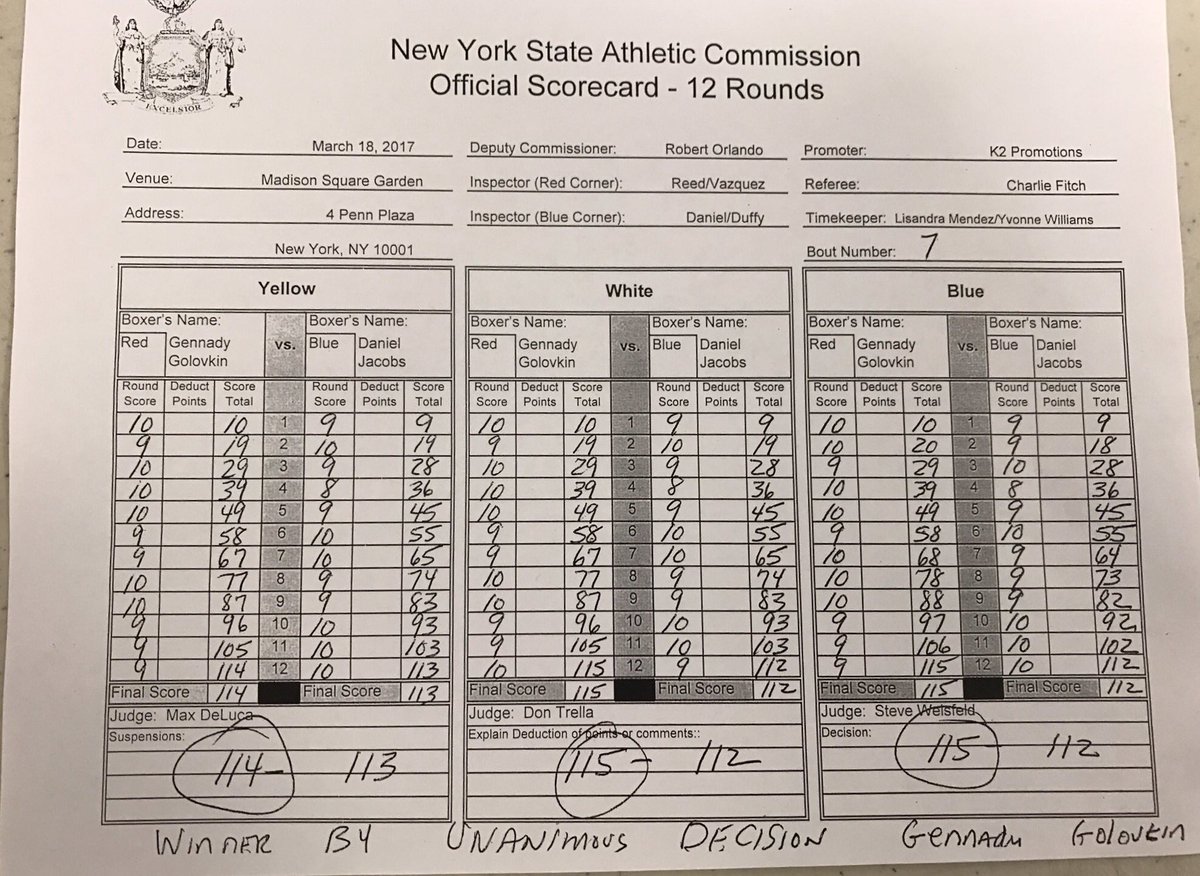 EXCELSIOR
New York State Athletic Commission
Official Scorecard - 12 Rounds
Date: March 18, 2017 Deputy Commissioner: Robert Orlando Promoter: K2 Promotions
Venue: Madison Square Garden Inspector (Red Corner): Reed/Vazquez Referee: Charlie Fitch
Address: 4 Penn Plaza Inspector (Blue Corner): Daniel/Duffy Timekeeper: Lisandra Mendez/Yvonne Williams
New York, NY 10001 Bout Number: 7
Yellow White Blue
Boxer's Name: Boxer's Name: Boxer's Name: Boxer's Name: Boxer's Name: Boxer's Name:
Red Gennady vs. Blue Daniel Red Gennady vs. Blue Daniel Red Gennady vs. Blue Daniel
Golovkin Jacobs Golovkin Jacobs Golovkin Jacobs
Round Deduct Score Round Deduct Score Round Deduct Score Round Deduct Score Round Deduct Score Round Deduct Score
Score Points Total Score Points Total Score Points Total Score Points Total Score Points Total Score Points Total
10 10 1 9 9 10 10 1 9 9 10 10 1 9 9
9 19 2 10 19 9 19 2 10 19 10 20 2 9 18
10 29 3 9 28 10 29 3 9 28 9 29 3 10 28
10 39 4 8 36 10 39 4 8 36 10 39 4 8 36
10 49 5 9 45 10 49 5 9 45 10 49 5 9 45
9 58 6 10 55 9 58 6 10 55 9 58 6 10 55
9 67 7 10 65 9 67 7 10 65 10 68 7 9 64
10 77 8 9 74 10 77 8 9 74 10 78 8 9 73
10 87 9 9 83 10 87 9 9 83 10 88 9 9 82
9 96 10 10 93 9 96 10 10 93 9 97 10 10 92
9 105 11 10 103 9 105 11 10 103 9 106 11 10 102
9 114 12 10 113 10 115 12 9 112 9 115 12 10 112
Final Score 114 Final Score 113 Final Score 115 Final Score 112 Final Score 115 Final Score 112
Judge: Max DeLuca Judge: Don Trella Judge: Steve Weisfeld
Suspensions: Explain Deduction of points or comments:: Decision:
114 - 113 115 - 112 115 - 112
WINNER BY UNANIMOUS DECISION GENNADY GOLOVKIN